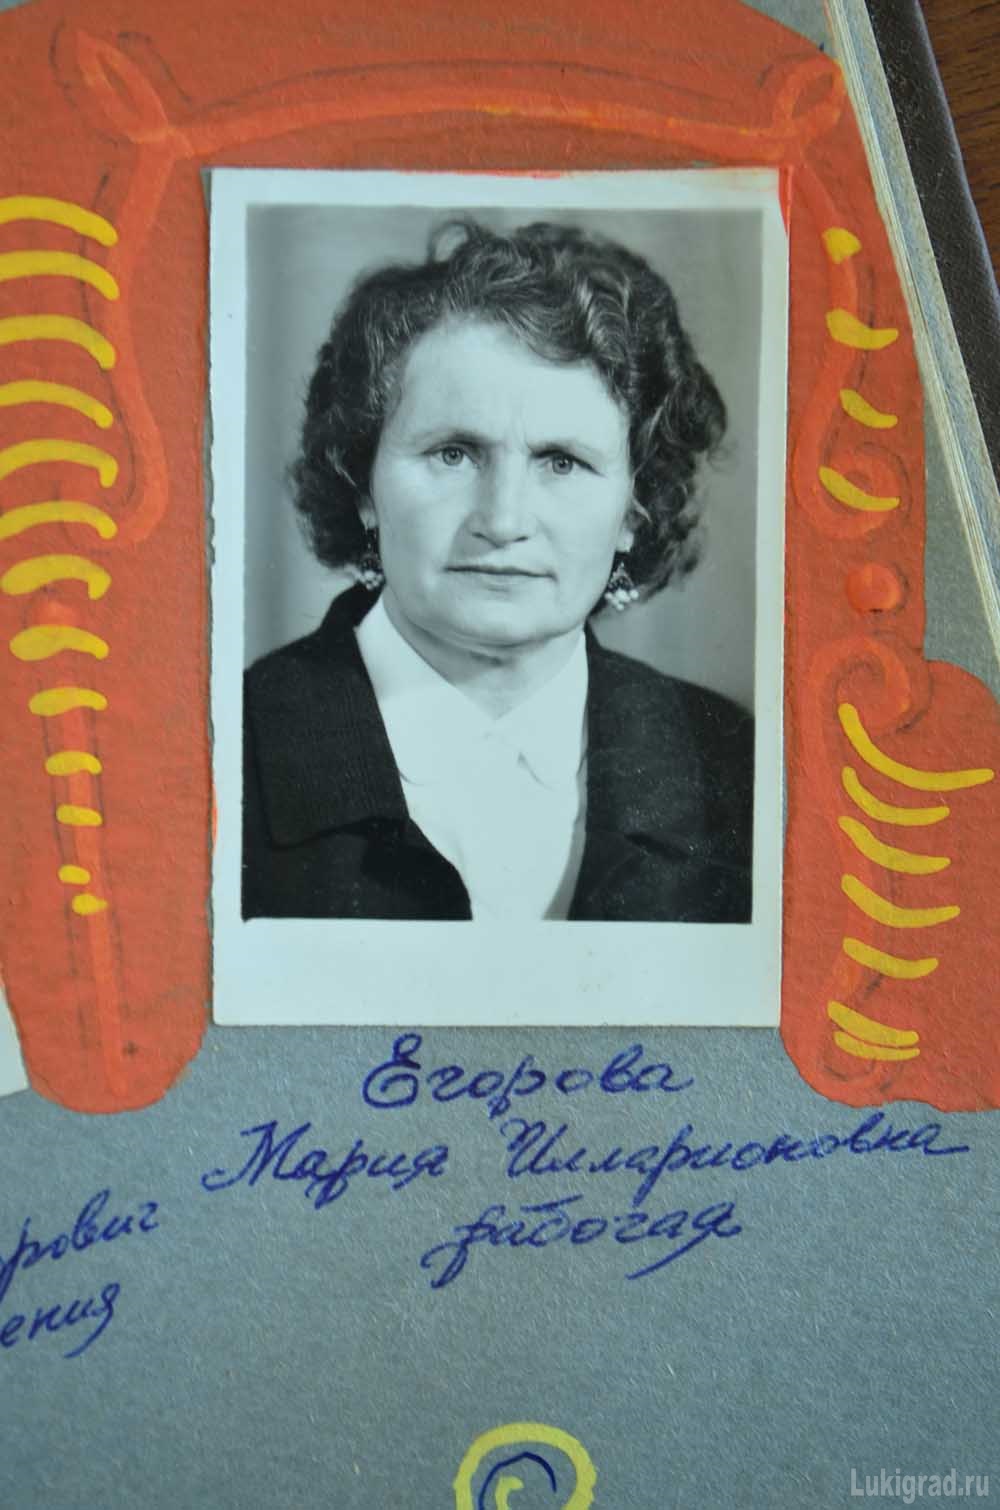 Егорова
Мария Илларионовна
рабочая
рович
ения
Lukigrad.ru